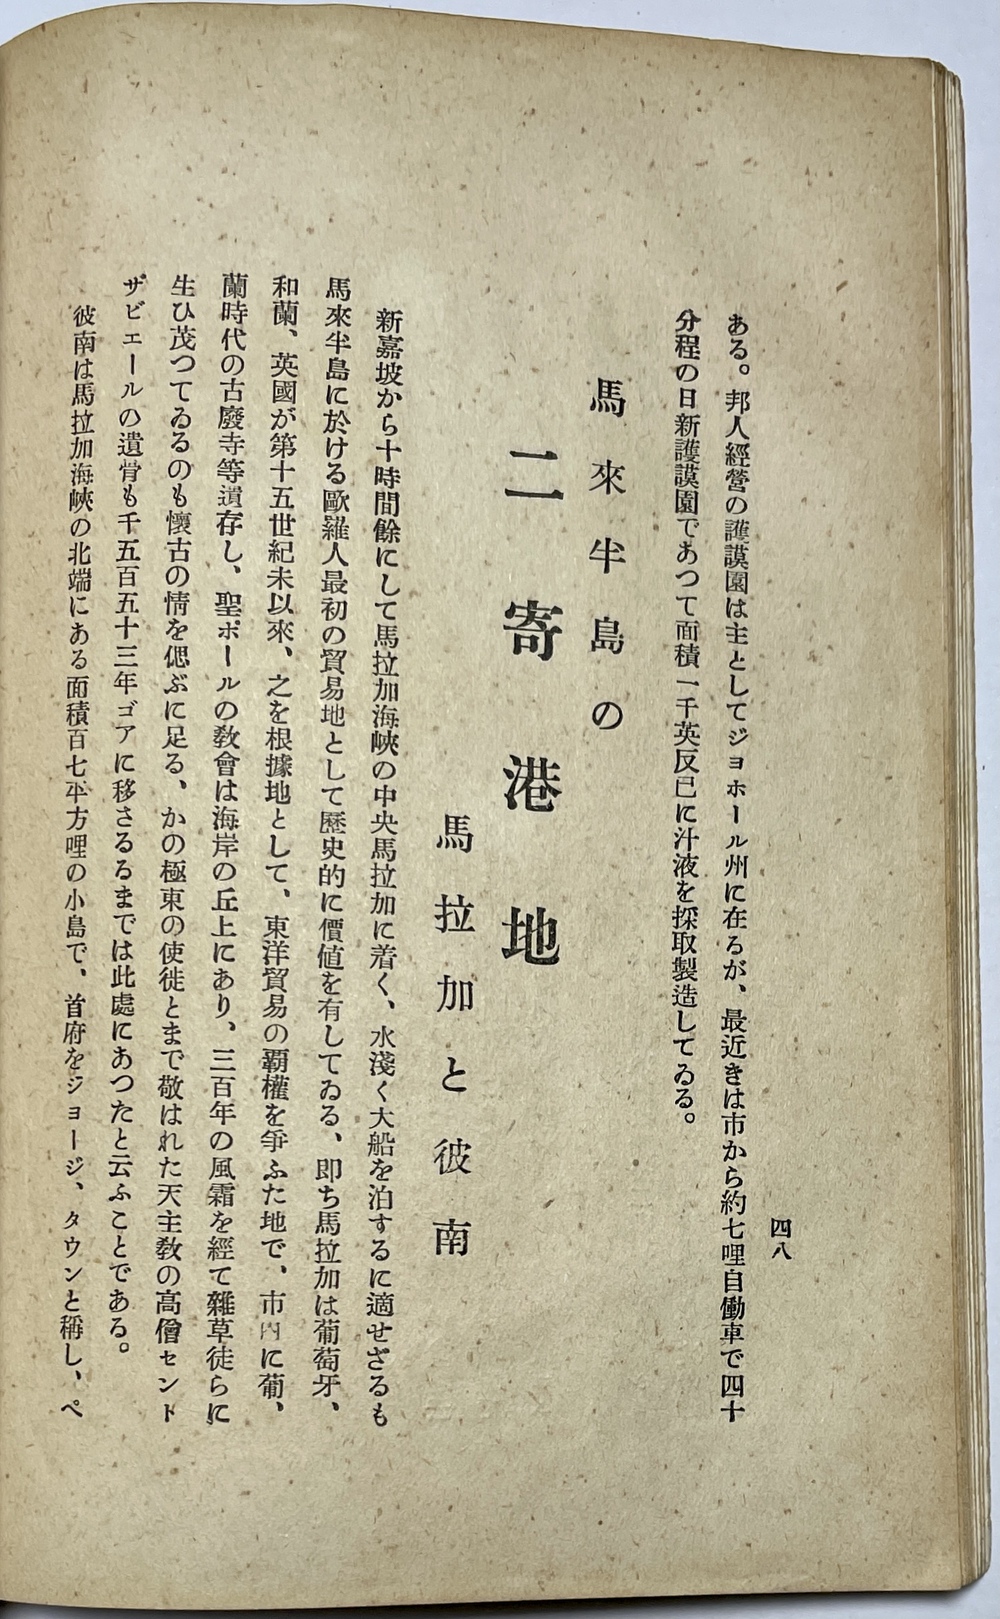 四八
ある。邦人經營の護謨園は主としてジョホール州に在るが、最近きは市から約七哩自働車で四十
分程の日新護謨園であつて面積一千英反已に汁液を採取製造してゐる。
馬來半島の
二寄港地
馬拉加と彼南
新嘉坡から十時間餘にして馬拉加海峽の中央馬拉加に着く、水淺く大船を泊するに適せざるも
馬來半島に於ける歐羅人最初の貿易地として歷史的に價値を有してゐる、卽ち馬拉加は葡萄牙、
和蘭、英國が第十五世紀末以來、之を根據地として、東洋貿易の覇權を爭ふた地で、市內に葡、
蘭時代の古廢寺等遺存し、聖ポールの敎會は海岸の丘上にあり、三百年の風霜を經て雜草徒らに
生ひ茂つてゐるのも懷古の情を偲ぶに足る、かの極東の使徒とまで敬はれた天主敎の高僧セント
ザビエールの遺骨も千五百五十三年ゴアに移さるるまでは此處にあつたと云ふことである。
彼南は馬拉加海峽の北端にある面積百七平方哩の小島で、首府をジョージ、タウンと稱し、ペ